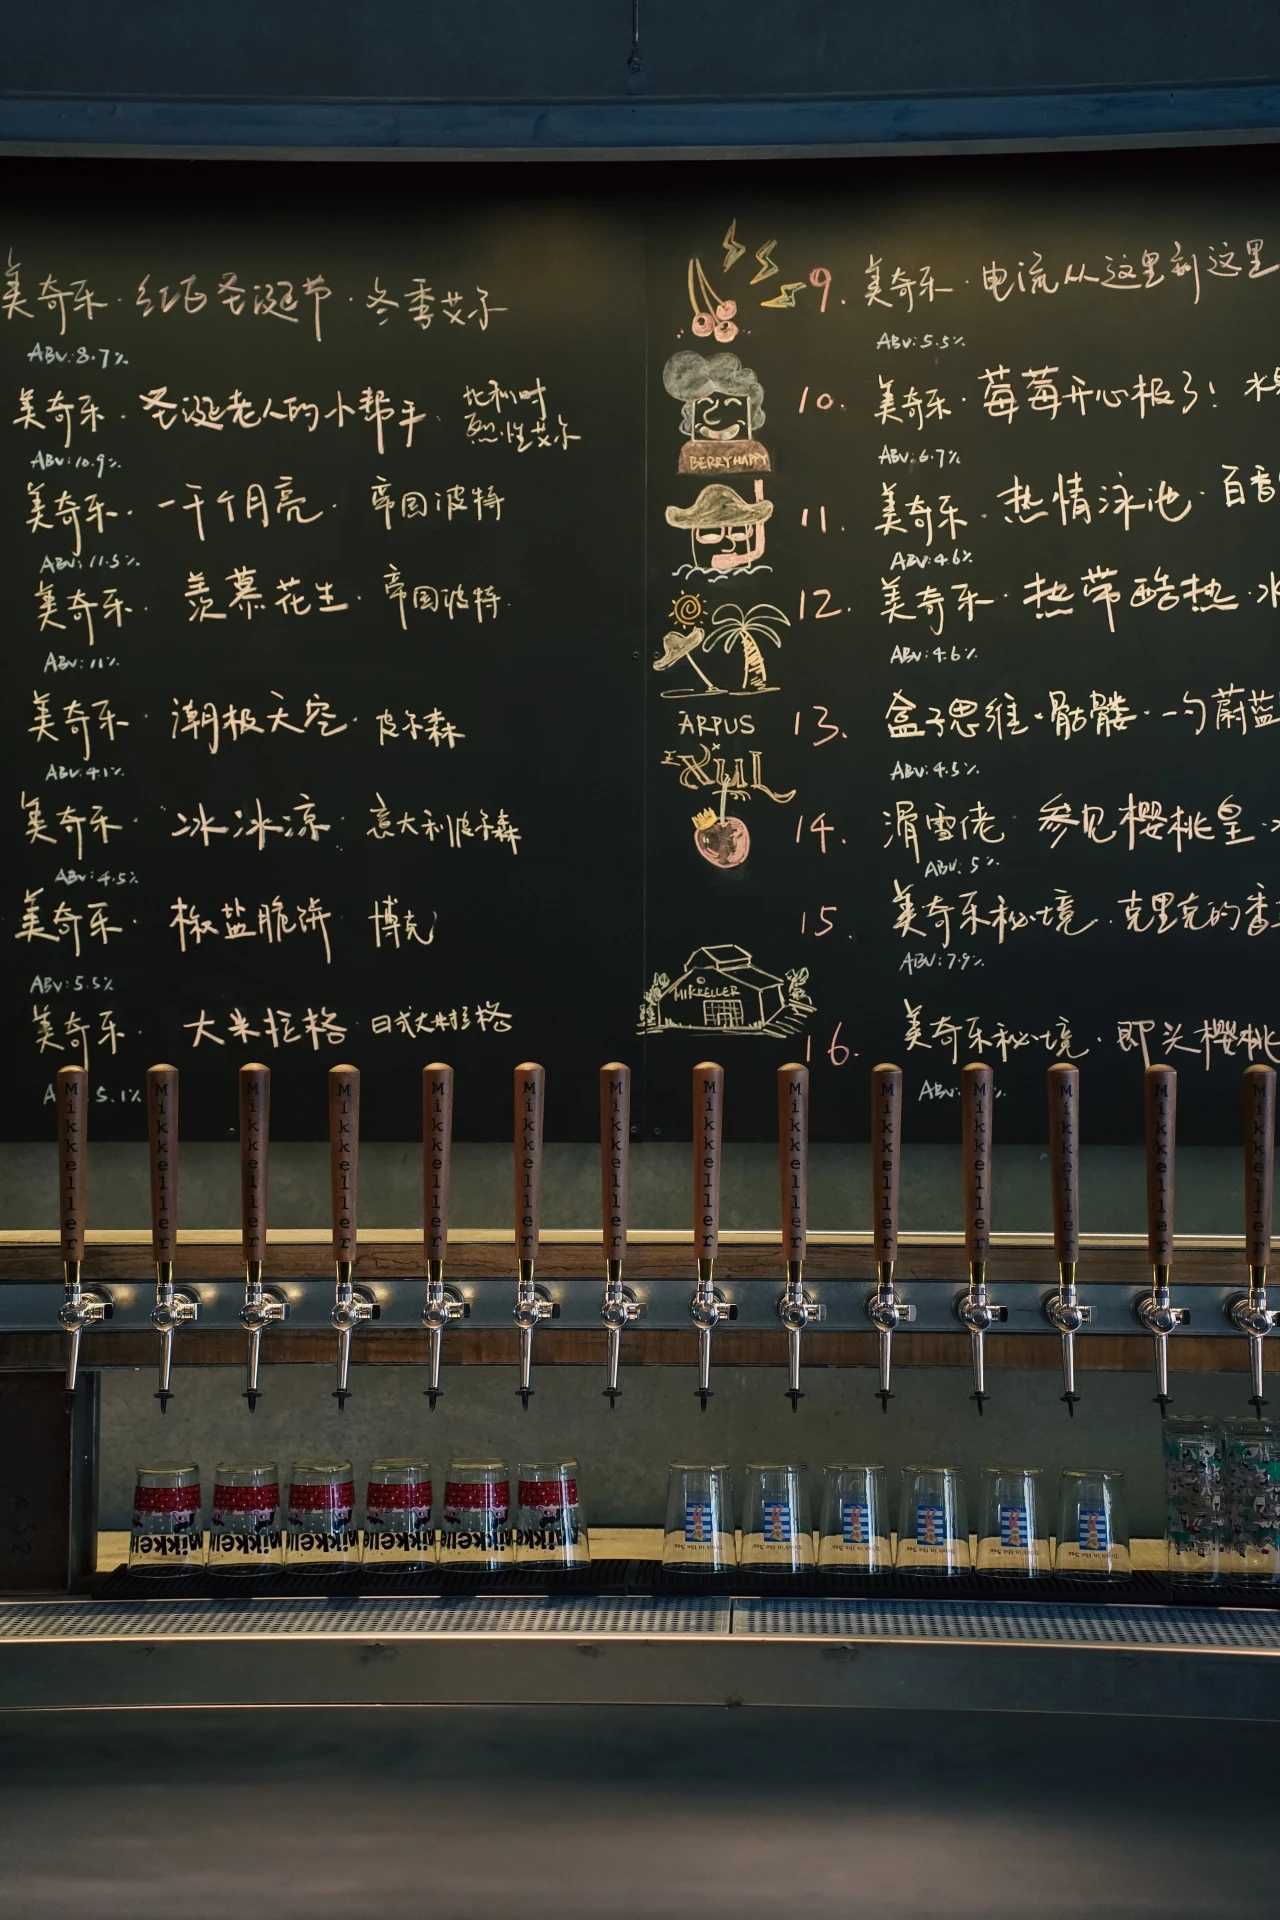 美奇乐·红白圣诞节·冬季艾尔
ABV:8.7%
美奇乐·圣诞老人的小帮手·比利时烈性艾尔
ABV:10.9%
美奇乐·一千个月亮·帝国波特
ABV:11.5%
美奇乐·羡慕花生·帝国波特
ABV:11%
美奇乐·潮极天空·皮尔森
ABV:4.1%
美奇乐·冰冰凉·意大利皮尔森
ABV:4.5%
美奇乐·椒盐脆饼 博克
ABV:5.5%
美奇乐·大米拉格·日式大米拉格
5.1%
BERRY HAPPY
ĀRPUS
MIKKELLER
9. 美奇乐·电流从这里到这里
ABV:5.5%
10. 美奇乐·莓莓开心极了!
ABV:6.7%
11. 美奇乐·热情泳池·百香
ABV:4.6%
12. 美奇乐·热带酷热·
ABV:4.6%
13. 盒子思维·骷髅·一勺蔚蓝
ABV:4.5%
14. 湄雪佬 参见樱桃皇·
ABV:5%
15. 美奇乐秘境·克里克的香
ABV:7.9%
16. 美奇乐秘境·即头樱桃
ABV:
Mikkeller
Mikkeller
Mikkeller
Mikkeller
Mikkeller
Mikkeller
Mikkeller
Mikkeller
Mikkeller
Mikkeller
Mikkeller
Mikkeller
Mikkeller
Mikkeller